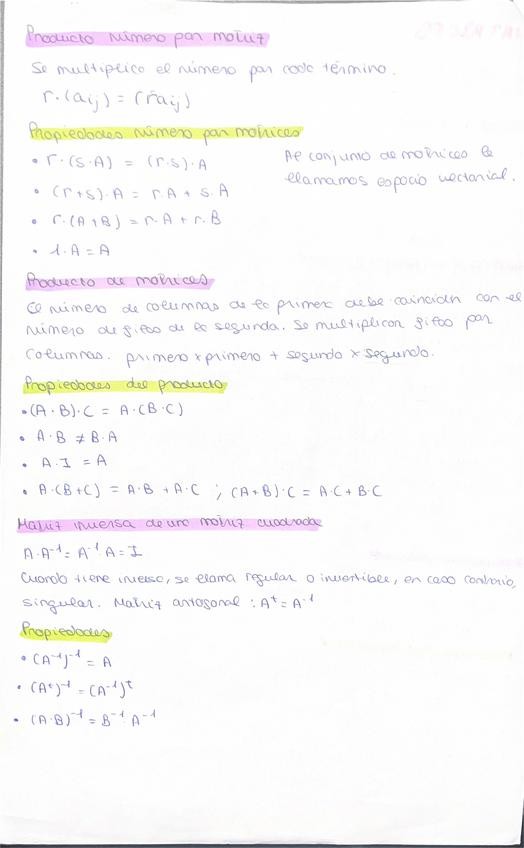 Producto número por matriz
Se multiplica el número por cada término.
r·(aij) = (raij)
Propiedades número por matrices
• r·(s·A) = (r·s)·A
• (r+s)·A = r·A + s·A
• r·(A+B) = r·A + r·B
• 1·A = A
Al conjunto de matrices le
llamamos espacio vectorial.
Producto de matrices
El número de columnas de la primera debe coincidir con el
número de filas de la segunda. Se multiplican filas por
columnas. primero x primero + segundo x segundo.
Propiedades del producto
• (A·B)·C = A·(B·C)
• A·B ≠ B·A
• A·I = A
• A·(B+C) = A·B + A·C ; (A+B)·C = A·C + B·C
Matriz inversa de una matriz cuadrada
A·A⁻¹ = A⁻¹·A = I
Cuando tiene inversa, se llama regular o invertible, en caso contrario,
singular. Matriz ortogonal : Aᵗ = A⁻¹
Propiedades
• (A⁻¹)⁻¹ = A
• (Aᵗ)⁻¹ = (A⁻¹)ᵗ
• (A·B)⁻¹ = B⁻¹·A⁻¹